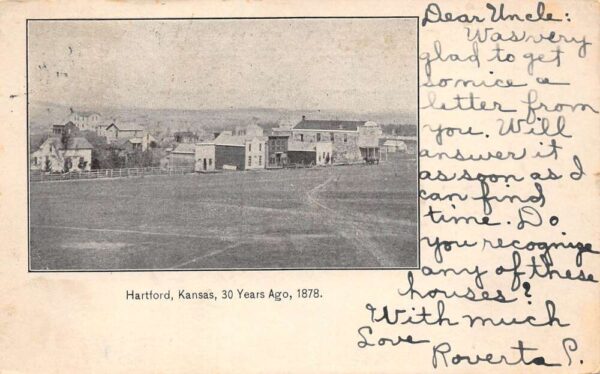 Dear Uncle:
Was very
glad to get
so nice a
letter from
you. Will
answer it
as soon as I
can find
time. Do
you recognize
any of these
houses?
With much
Love
Roverta P.
Hartford, Kansas, 30 Years Ago, 1878.